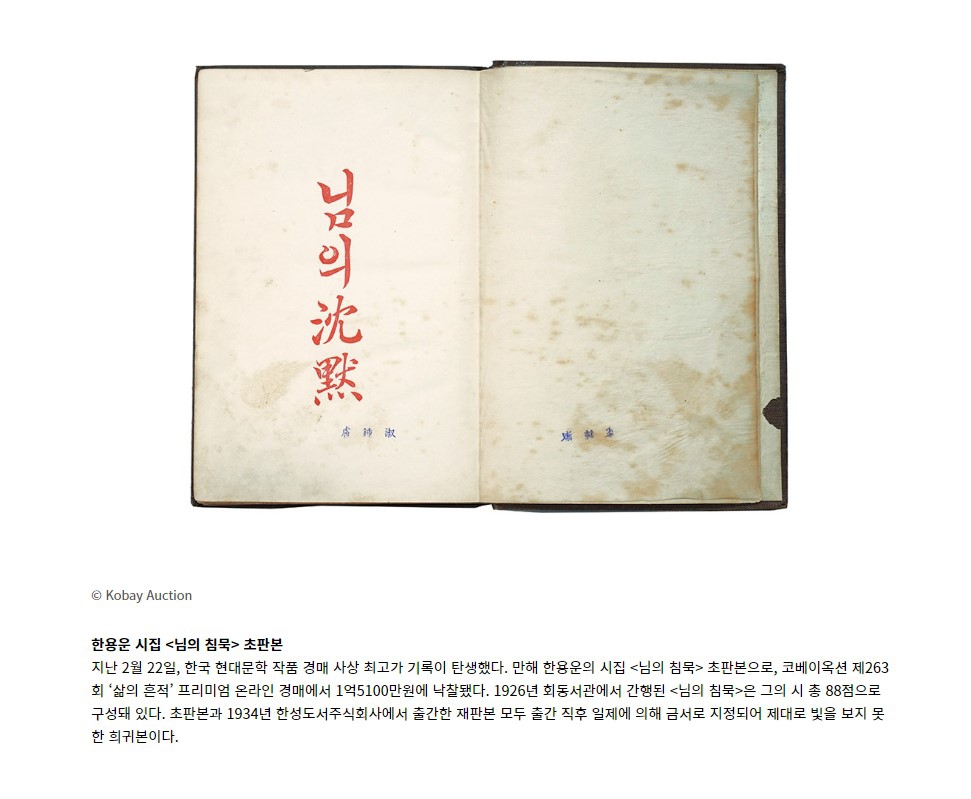 님의沈默
© Kobay Auction
한용운 시집 <님의 침묵> 초판본
지난 2월 22일, 한국 현대문학 작품 경매 사상 최고가 기록이 탄생했다. 만해 한용운의 시집 <님의 침묵> 초판본으로, 코베이옥션 제263
회 ‘삶의 흔적’ 프리미엄 온라인 경매에서 1억5100만원에 낙찰됐다. 1926년 회동서관에서 간행된 <님의 침묵>은 그의 시 총 88점으로
구성돼 있다. 초판본과 1934년 한성도서주식회사에서 출간한 재판본 모두 출간 직후 일제에 의해 금서로 지정되어 제대로 빛을 보지 못
한 희귀본이다.